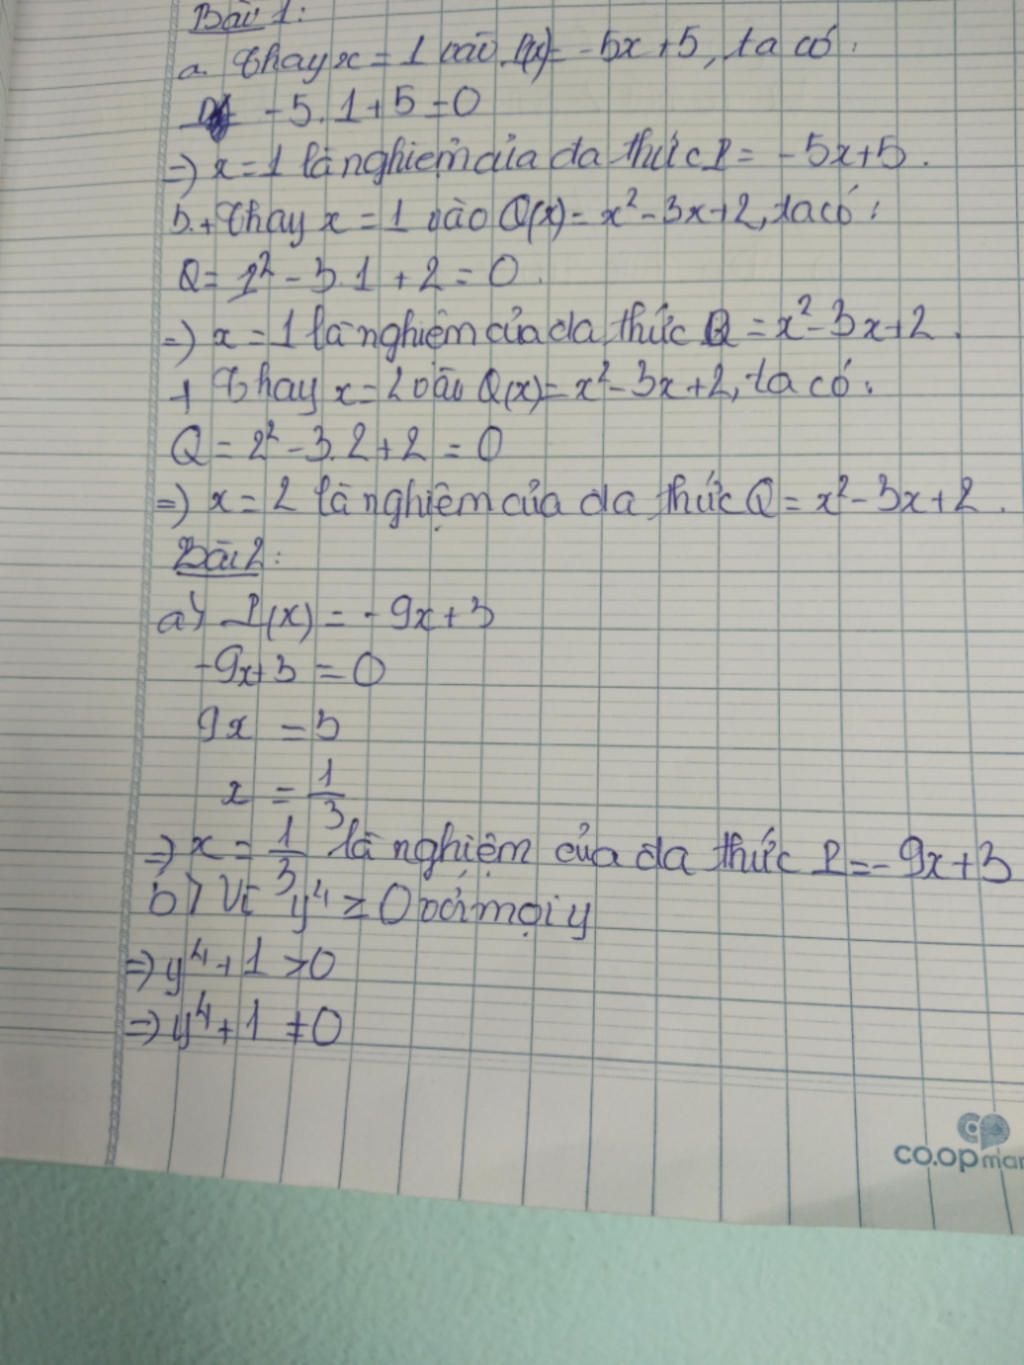 Bài 1:
a. Thay x = 1 vào P(x) = -5x + 5, ta có:
-5.1 + 5 = 0
=) x = 1 là nghiệm của đa thức P = -5x + 5.
b. + Thay x = 1 vào Q(x) = x² - 3x + 2, ta có:
Q = 1² - 3.1 + 2 = 0.
=) x = 1 là nghiệm của đa thức Q = x² - 3x + 2.
+ Thay x = 2 vào Q(x) = x² - 3x + 2, ta có:
Q = 2² - 3.2 + 2 = 0
=) x = 2 là nghiệm của đa thức Q = x² - 3x + 2.
Bài 2:
a) P(x) = -9x + 3
-9x + 3 = 0
9x = 3
x = 1/3
=) x = 1/3 là nghiệm của đa thức P = -9x + 3
b) Vì y⁴ ≥ 0 với mọi y
=) y⁴ + 1 > 0
=) y⁴ + 1 ≠ 0
co.opmar